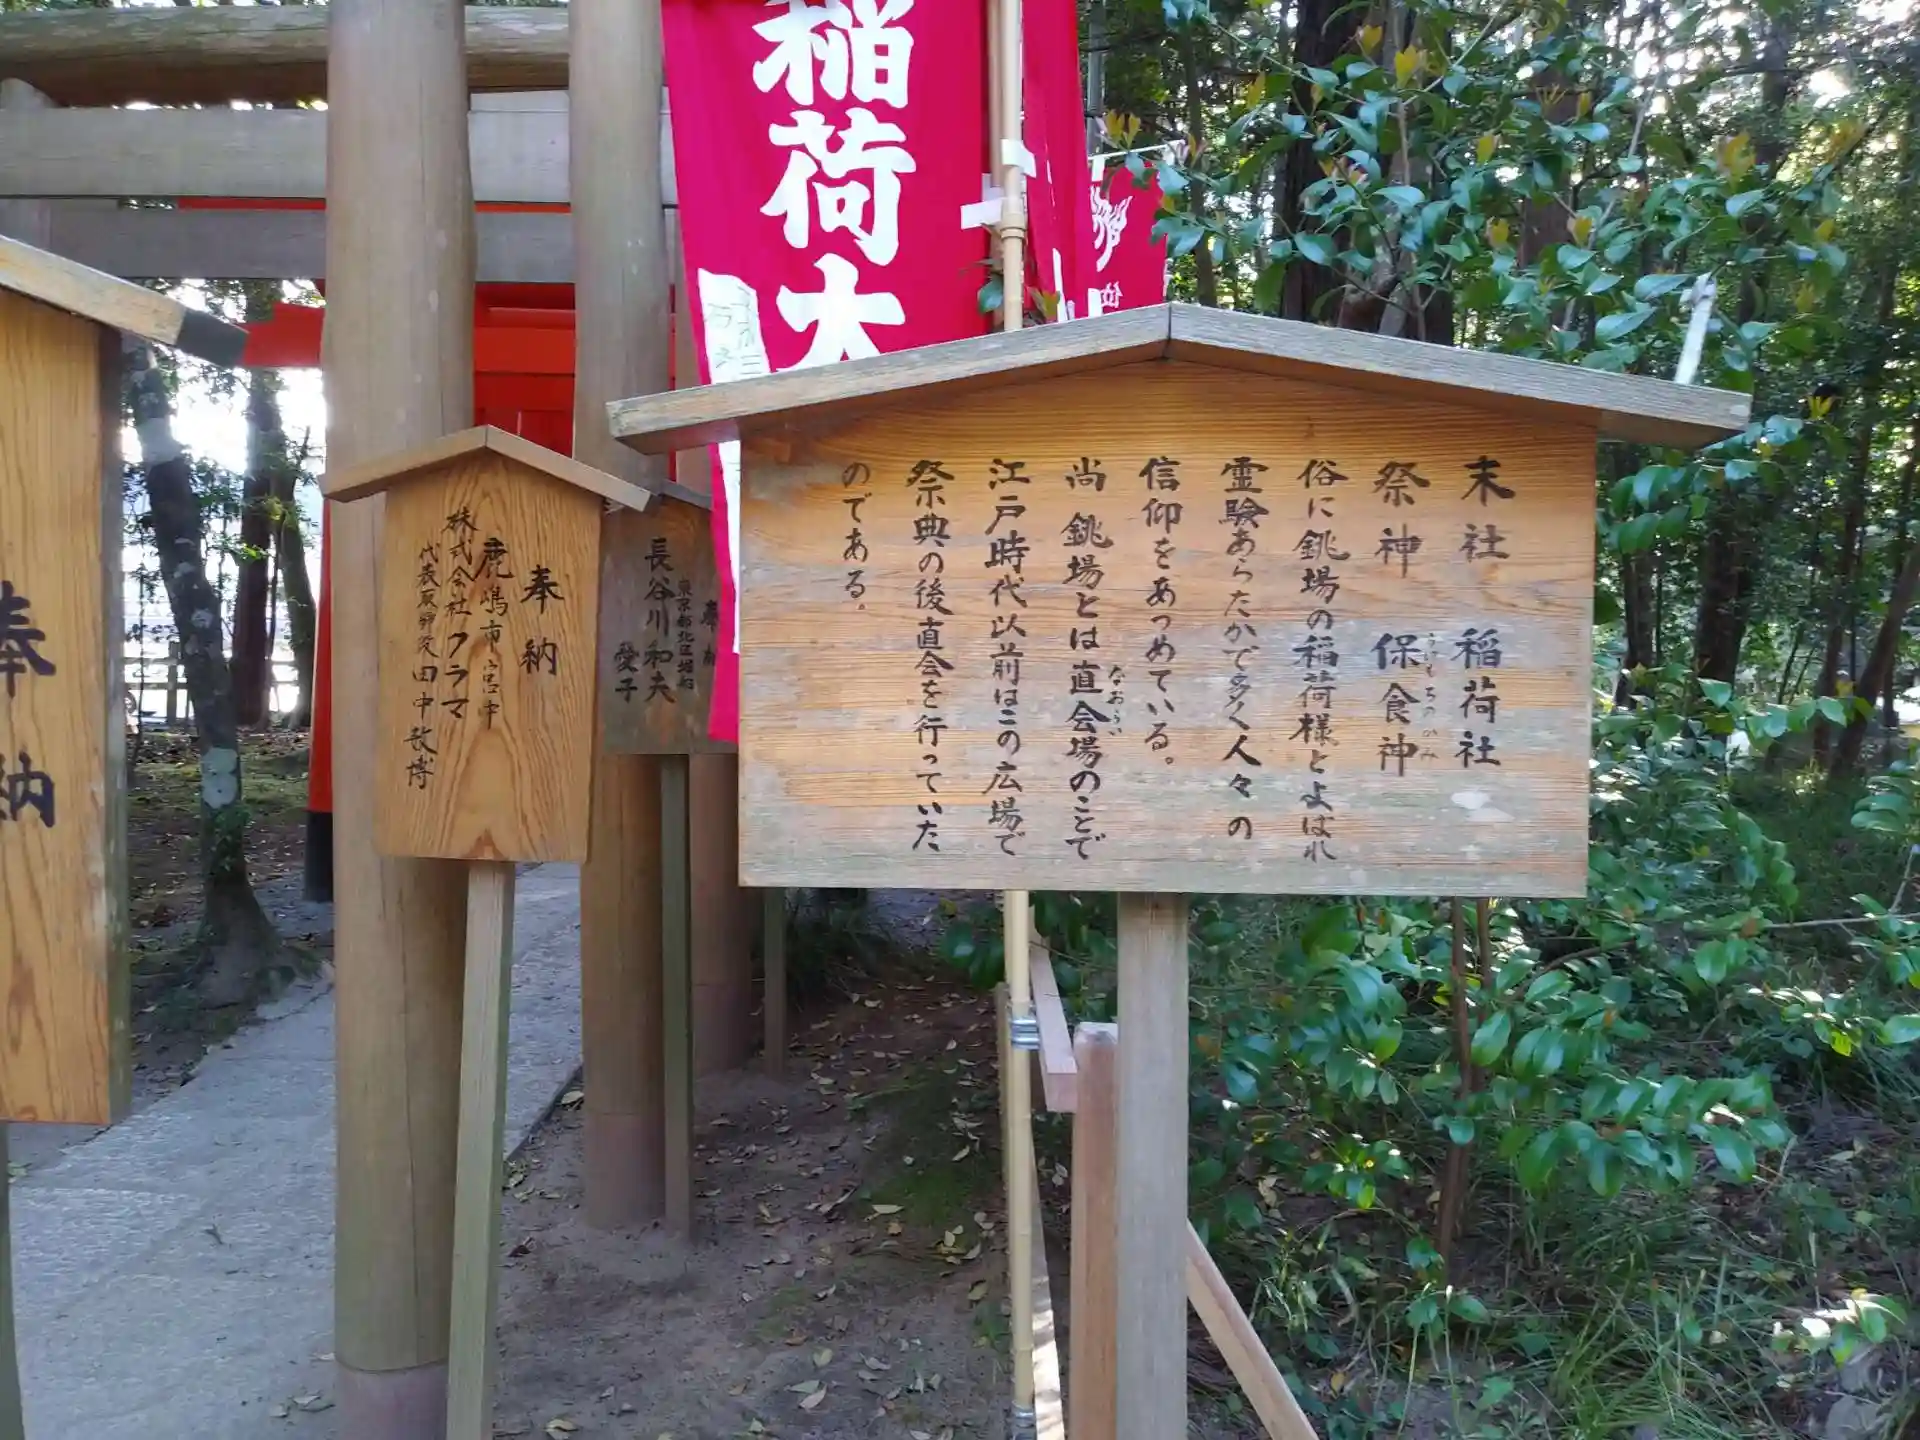 末社 稲荷社
祭神 保食神
うけもちのかみ
俗に銚場の稲荷様とよばれ
霊験あらたかで多く人々の
信仰をあつめている。
尚 銚場とは直会場のことで
なおらい
江戸時代以前はこの広場で
祭典の後直会を行っていた
のである。
稲荷大
奉納
東京都北区堀船
長谷川和夫
愛子
奉納
鹿嶋市宮中
株式会社クラマ
代表取締役 田中敏博
奉納